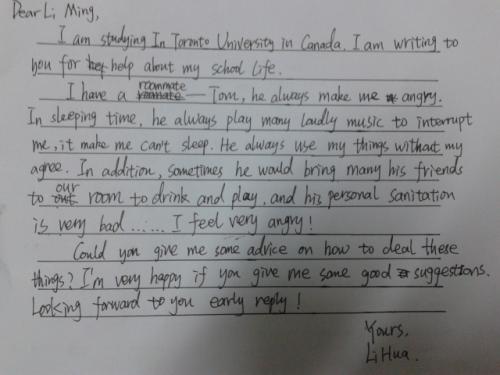 Dear Li Ming,
I am studying In Toronto University in Canada. I am writing to
you for help about my school life.
I have a roommate — Tom, he always make me angry.
In sleeping time, he always play many loudly music to interrupt
me, it make me can't sleep. He always use my things without my
agree. In addition, sometimes he would bring many his friends
to our room to drink and play, and his personal sanitation
is very bad …… I feel very angry!
Could you give me some advice on how to deal these
things? I'm very happy if you give me some good suggestions.
Looking forward to you early reply!
Yours,
Li Hua.